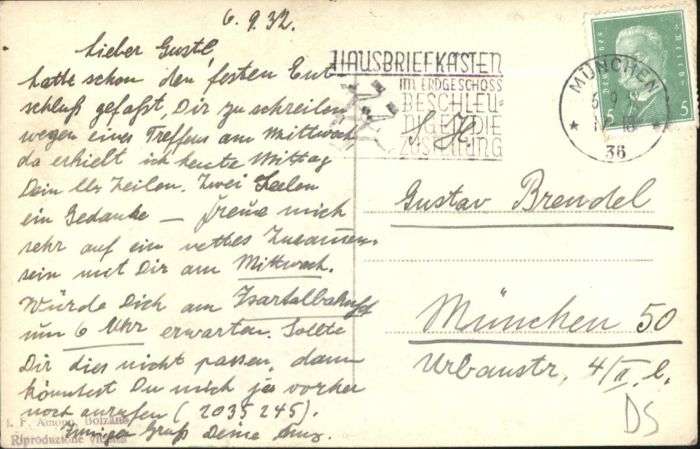 6.9.32.
Lieber Gustl!
hatte schon den festen Ent-
schluß gefaßt, Dir zu schreiben
wegen eines Treffens am Mittwoch
da erhielt ich heute Mittag
Dein lb. Zeilen. Zwei Seelen
ein Gedanke — freue mich
sehr auf ein nettes Zusammen-
sein mit Dir am Mittwoch.
Würde Dich am Isartalbahnhof
um 6 Uhr erwarten. Sollte
Dir dies nicht passen, dann
könntest Du mich ja vorher
noch anrufen (2035245).
Innigen Gruß Deine
F. Bolzano
Riproduzione vietata
HAUSBRIEFKASTEN
IM ERDGESCHOSS
BESCHLEU-
NIGEN DIE
ZUSTELLUNG
S. H.
MÜNCHEN
36
5 5
Gustav Brendel
München 50
Urbanstr. 4/II l.
DS